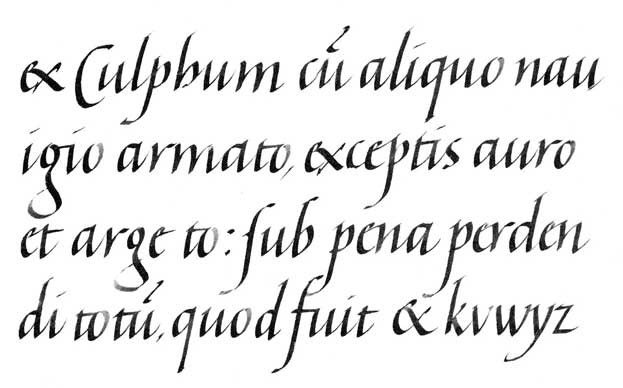 & Culphum cū aliquo nau
igio armato, exceptis auro
et arge to: ſub pena perden
di totū, quod fuit & kvwyz